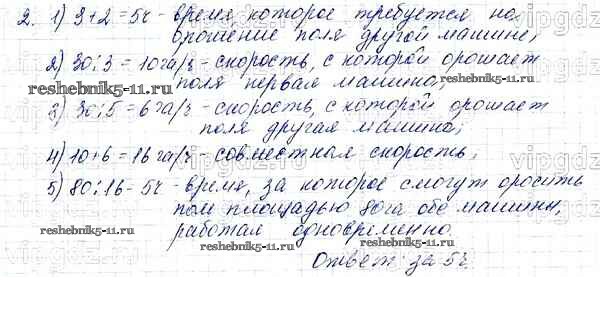 2. 1) 3+2=5ч - время которое требуется на
орошение поля другой машине;
2) 30:3=10га/ч - скорость, с которой орошает
поля первая машина;
3) 30:5=6га/ч - скорость, с которой орошает
поля другая машина;
4) 10+6=16га/ч - совместная скорость;
5) 80:16=5ч - время, за которое смогут оросить
поле площадью 80га обе машины,
работая одновременно.
Ответ: за 5ч.
reshebnik5-11.ru
reshebnik5-11.ru
reshebnik5-11.ru
reshebnik5-11.ru
reshebnik5-11.ru